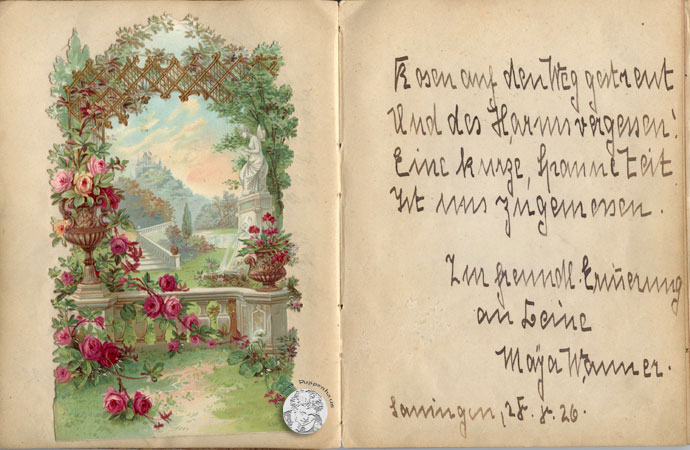 Rosen auf den Weg gestreut
Und des Harms vergessen!
Eine kurze Spanne Zeit
Ist uns zugemessen.
Zur freundl. Erinnerung
an Deine
Maya Wanner.
25. 8. 26.
Puppenhaus